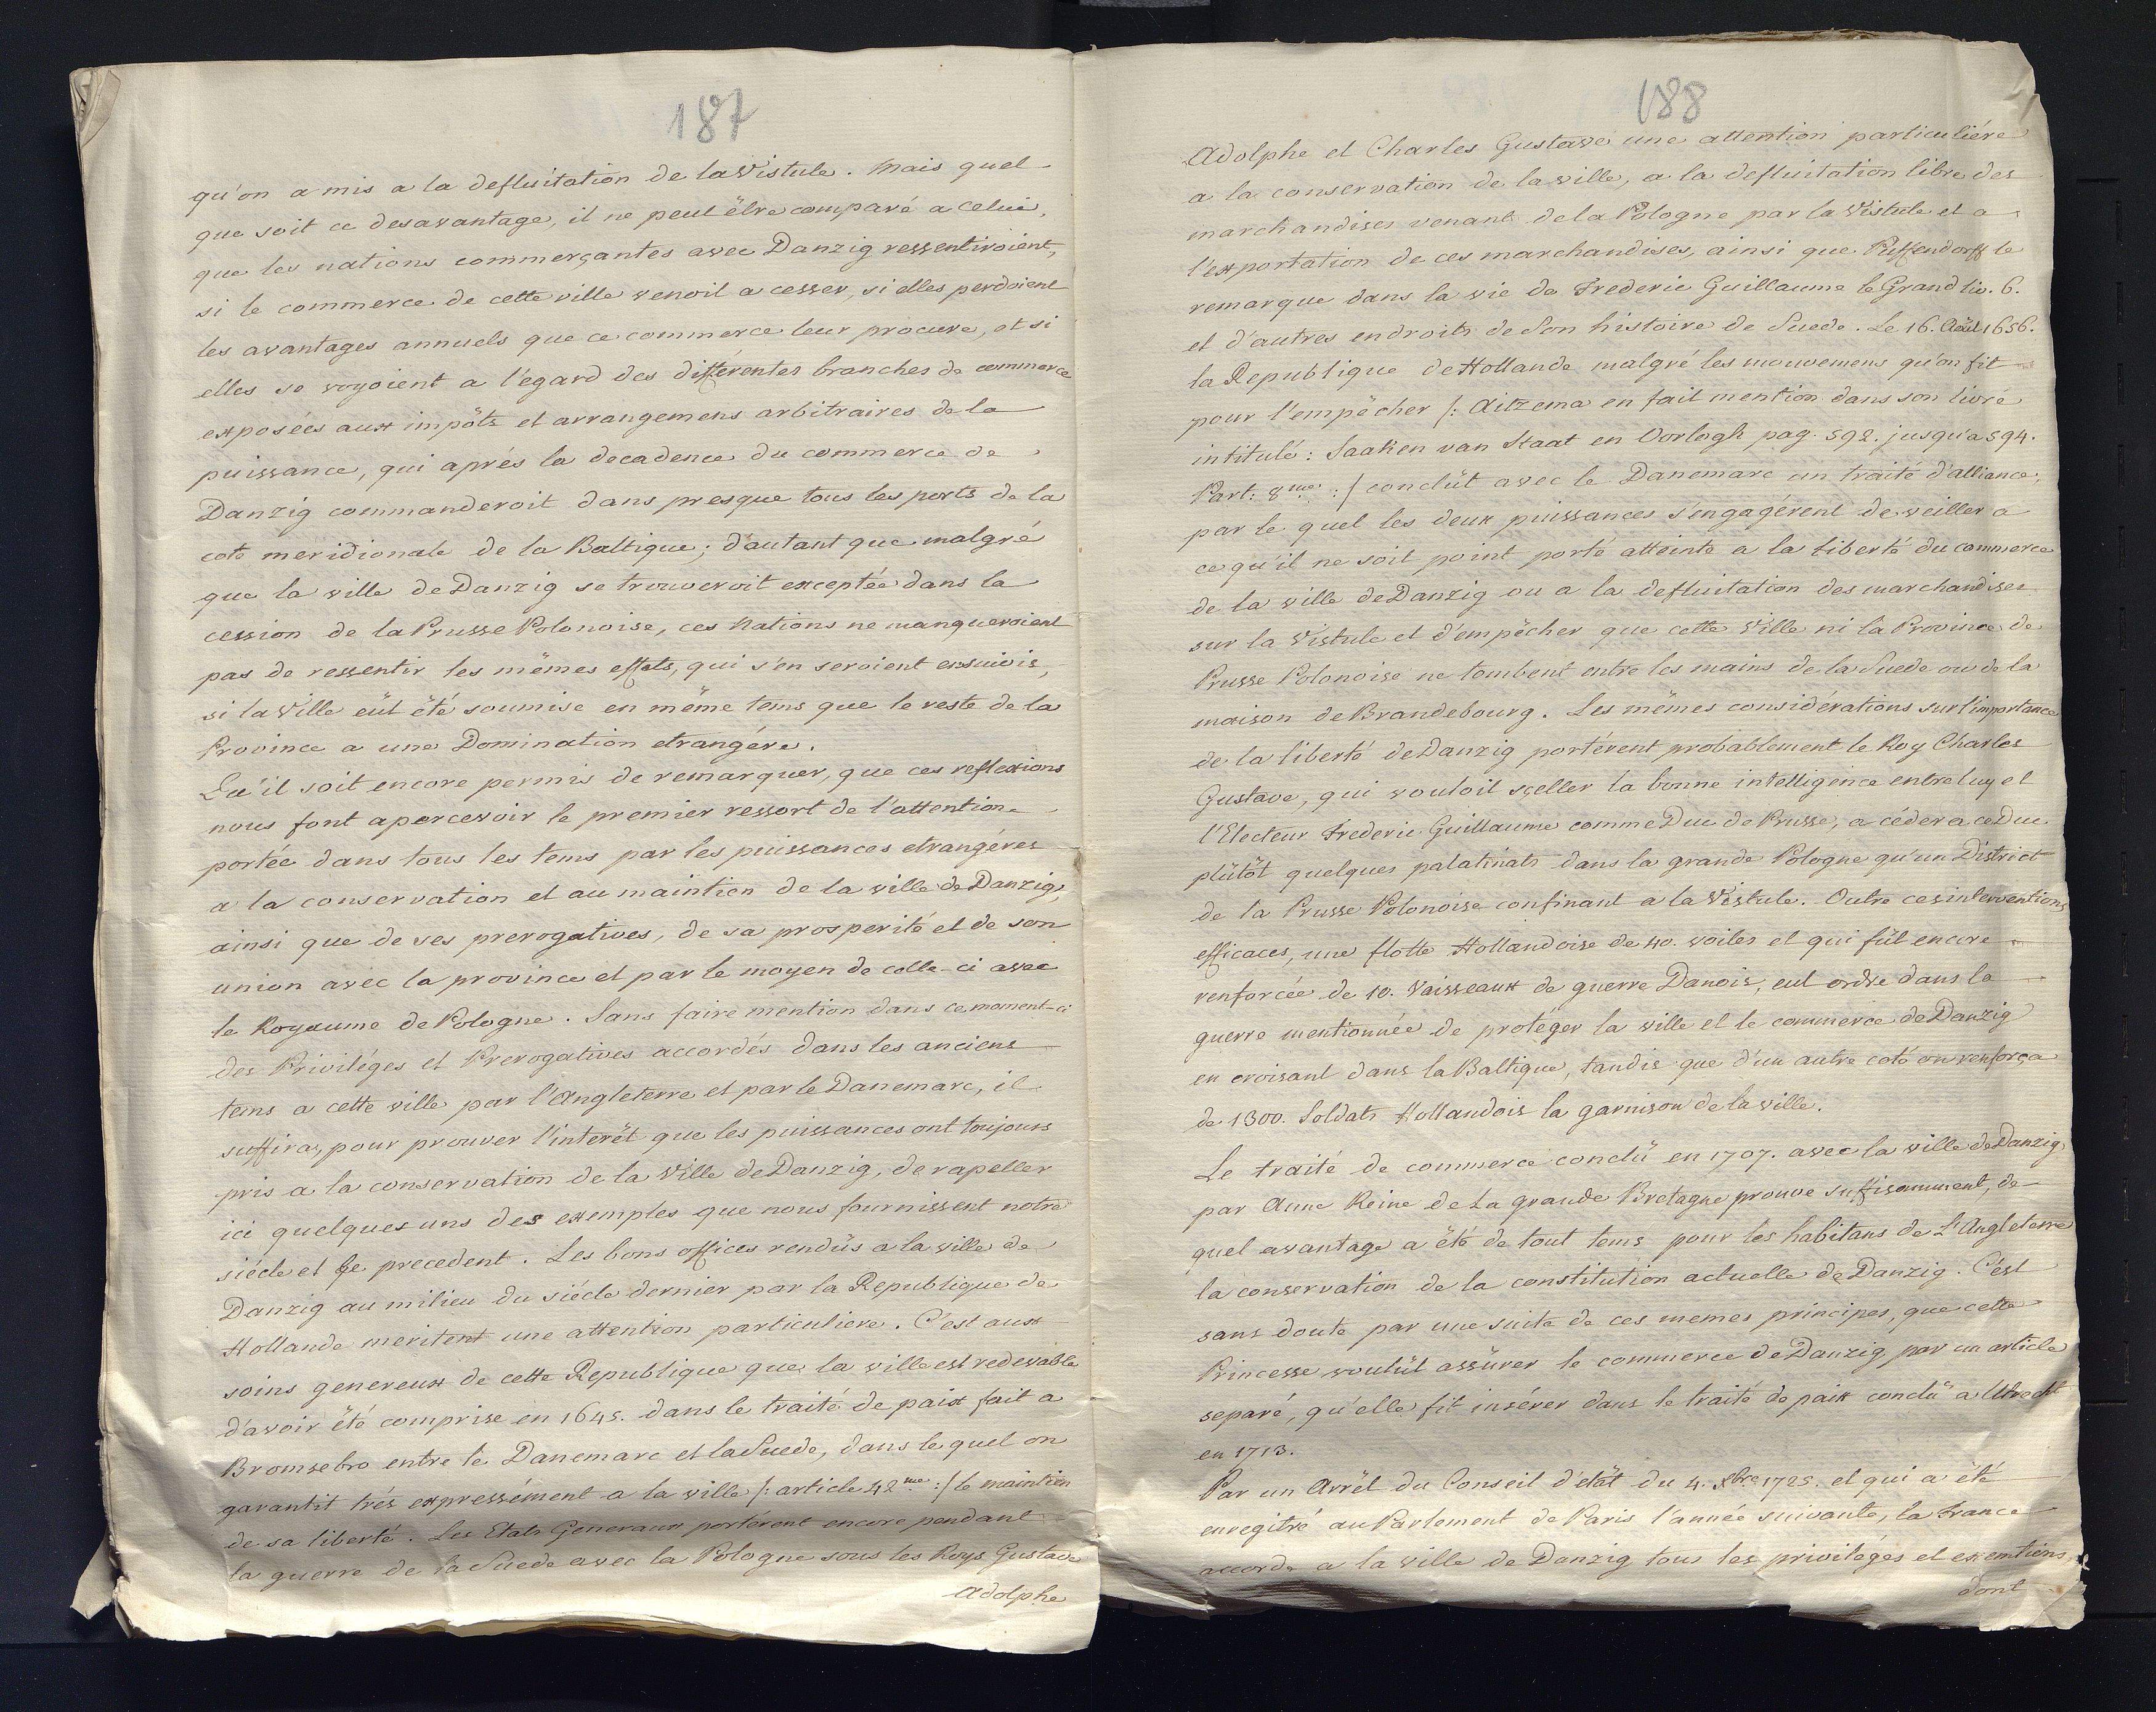 187
qu'on a mis a la defluitation de la Vistule. Mais quel
que soit ce desavantage, il ne peut être comparé a celui,
que les nations commerçantes avec Danzig ressentiroient,
si le commerce de cette ville venoit a cesser, si elles perdoient
les avantages annuels que ce commerce leur procure, et si
elles se voyoient a l'egard des différentes branches de commerce
exposées aux impôts et arrangemens arbitraires de la
puissance, qui aprés la decadence du commerce de
Danzig commanderoit dans presque tous les ports de la
coté meridionale de la Baltique; d'autant que malgré
que la ville de Danzig se trouveroit exceptée dans la
cession de la Prusse Polonoise, ces Nations ne manqueroient
pas de ressentir les mêmes effets, qui s'en seroient ensuivis,
si la Ville eût été soumise en même tems que le reste de la
Province a une Domination etrangére.
Qu'il soit encore permis de remarquer, que ces reflexions
nous font apercevoir le premier ressort de l'attention
portée dans tous les tems par les puissances etrangéres
a la conservation et au maintien de la ville de Danzig,
ainsi que de ses prerogatives, de sa prosperité et de son
union avec la province et par le moyen de celle-ci avec
le Royaume de Pologne. Sans faire mention dans ce moment-ci
des Priviléges et Prerogatives accordés dans les anciens
tems a cette ville par l'Angleterre et par le Danemarc, il
suffira, pour prouver l'interêt que les puissances ont toujours
pris a la conservation de la Ville de Danzig, de rapeller
ici quelques uns des exemples que nous fournissent notre
siécle et le precedent. Les bons offices rendûs a la ville de
Danzig au milieu du siécle dernier par la Republique de
Hollande meritent une attention particuliere. C'est aux
soins genereux de cette Republique que la ville est redevable
d'avoir été comprise en 1645. dans le traité de paix fait a
Bromsebro entre le Danemarc et la Suede, dans le quel on
garantit trés expressément a la ville /: article 42me :/ le maintien
de sa liberté. Les Etats Generaux portérent encore pendant
la guerre de la Suede avec la Pologne sous les Roys Gustave
Adolphe
188
Adolphe et Charles Gustave une attention particuliére
a la conservation de la ville, a la defluitation libre des
marchandises venant de la Pologne par la Vistule et a
l'exportation de ces marchandises, ainsi que Puffendorff le
remarque dans la vie de Frederic Guillaume le Grand liv. 6.
et d'autres endroits de Son histoire de Suede. Le 16. Août 1656.
la Republique de Hollande malgré les mouvemens qu'on fit
pour l'empêcher /: Aitzema en fait mention dans son livre
intitulé: Saaken van Staat en Oorlogh pag. 592. jusqu'a 594.
Part: 8me :/ conclût avec le Danemarc un traité d'alliance,
par le quel les deux puissances s'engagérent de veiller a
ce qu'il ne soit point porté atteinte a la liberté du commerce
de la ville de Danzig ou a la defluitation des marchandises
sur la Vistule et d'empêcher que cette Ville ni la Province de
Prusse Polonoise ne tombent entre les mains de la Suede ou de la
maison de Brandebourg. Les mêmes considérations sur l'importance
de la liberté de Danzig portérent probablement le Roy Charles
Gustave, qui vouloit sçeller la bonne intelligence entre luy et
l'Electeur Frederic Guillaume comme Duc de Prusse, a céder a ce Duc
plûtôt quelques palatinats dans la grande Pologne qu'un District
de la Prusse Polonoise confinant a la Vistule. Outre ces interventions
efficaces, une flotte Hollandoise de 40. voiles et qui fût encore
renforcée de 10. Vaisseaux de guerre Danois, eut ordre dans la
guerre mentionnée de protéger la ville et le commerce de Danzig
en croisant dans la Baltique, tandis que d'un autre coté on renforça
de 1300. Soldats Hollandois la garnison de la ville.
Le traité de commerce conclû en 1707. avec la ville de Danzig
par Anne Reine de La grande Bretagne prouve suffisamment, de
quel avantage a été de tout tems pour les habitans de L'Angleterre
la conservation de la constitution actuelle de Danzig. C'est
sans doute par une suite de ces memes principes, que cette
Princesse voulût assûrer le commerce de Danzig par un article
separé, qu'elle fit insérer dans le traité de paix conclû a Utrecht
en 1713.
Par un Arrêt du Conseil d'etât du 4. Xbre 1725. et qui a été
enregitré au Parlement de Paris l'année suivante, la France
accorde a la ville de Danzig tous les priviléges et exemtions
dont